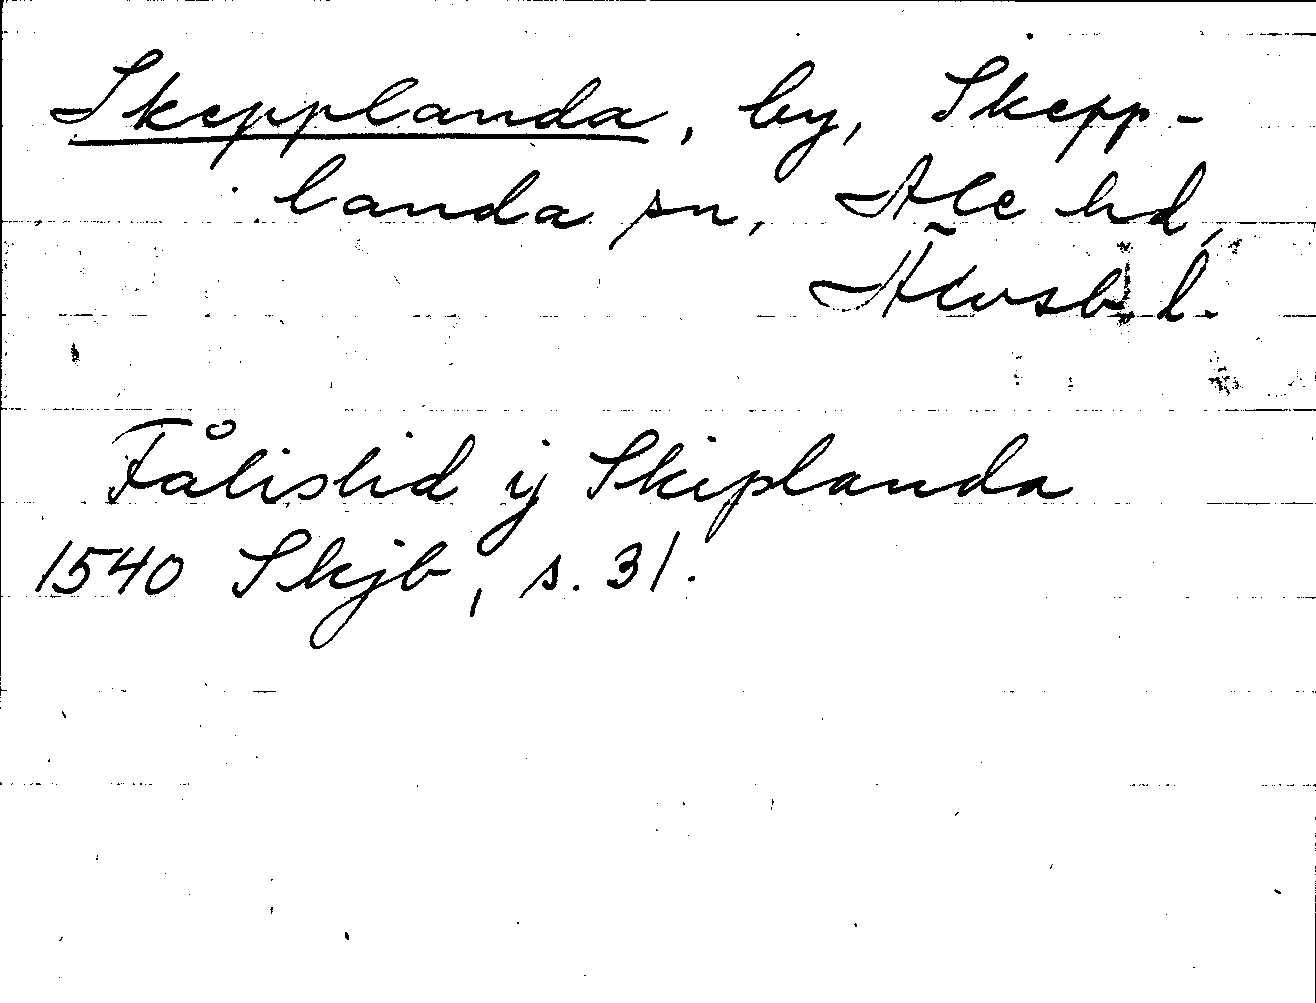 Skepplanda, by, Skepp-
landa sn, Ale hd,
Älvsb. l.
Fålislid ij Skiplanda
1540 Skjb, s. 31.